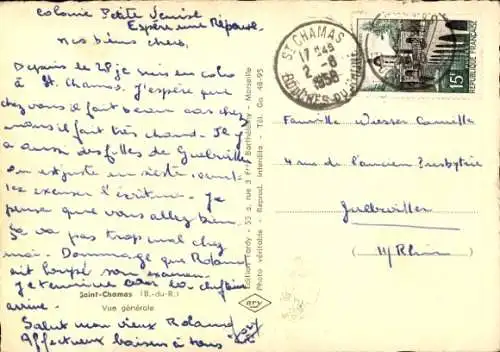 Colonie Petite Venise
Espère une Réponse.
Mes biens chers,
Depuis le 28 je suis en colo
à St. Chamas. J'espère que
chez vous il fait beau car chez
nous il fait très chaud. Il y
a aussi des filles de Guebwiller
on est juste en sieste, 
les excuser l'écriture. Je
pense que vous allez bien
Sa va pas trop mal chez
moi. Dommage que Roland
ait loupé son examen.
Je termine car la cheftaine
arrive.
Salut mon vieux Roland
Affectueux baisers à tous
Saint-Chamas (B.-du-R.)
Vue générale
Edition Tardy - 53 a, rue 3 Frères Barthélemy - Marseille
Photo véritable - Reprod. interdite - Tél. Ga 48-95
ST CHAMAS
17 H45
2-8
1958
BOUCHES-DU-RHONE
15F
REPUBLIQUE FRANÇAISE
Famille Wiesser Camille
4 rue de l'ancien Presbytère
Guebwiller
H/Rhin